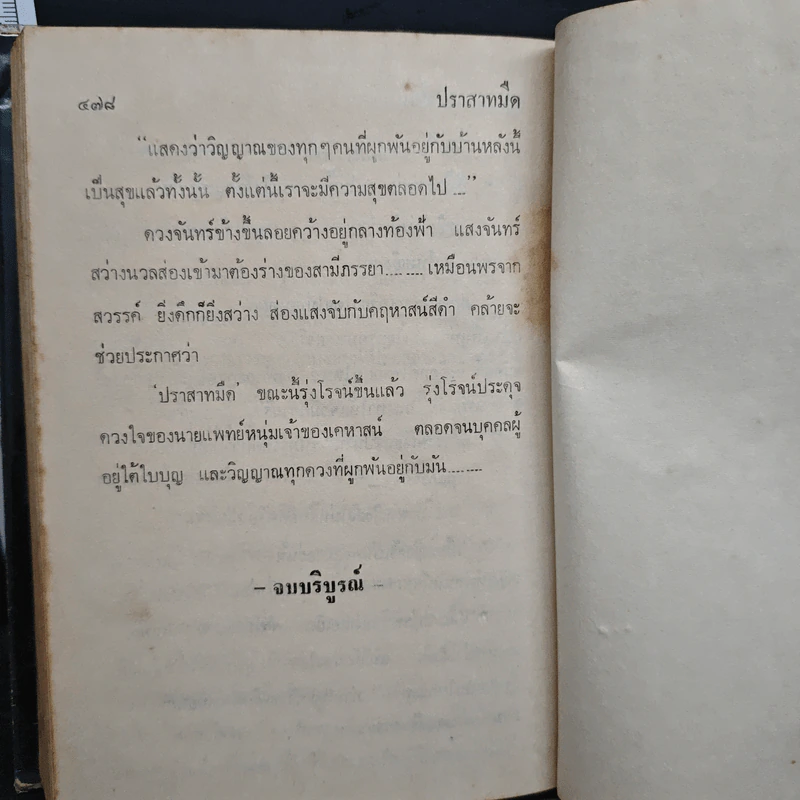 ๔๗๘ ปราสาทมืด
“แสดงว่าวิญญาณของทุกๆคนที่ผูกพันอยู่กับบ้านหลังนี้
เป็นสุขแล้วทั้งนั้น ตั้งแต่นี้เราจะมีความสุขตลอดไป ...”
ดวงจันทร์ข้างขึ้นลอยคว้างอยู่กลางท้องฟ้า แสงจันทร์
สว่างนวลส่องเข้ามาต้องร่างของสามีภรรยา........เหมือนพรจาก
สวรรค์ ยิ่งดึกก็ยิ่งสว่าง ส่องแสงจับกับคฤหาสน์สีดำ คล้ายจะ
ช่วยประกาศว่า
‘ปราสาทมืด’ ขณะนี้รุ่งโรจน์ขึ้นแล้ว รุ่งโรจน์ประดุจ
ดวงใจของนายแพทย์หนุ่มเจ้าของเคหาสน์ ตลอดจนบุคคลผู้
อยู่ใต้ใบบุญ และวิญญาณทุกดวงที่ผูกพันอยู่กับมัน........
– จบบริบูรณ์ –